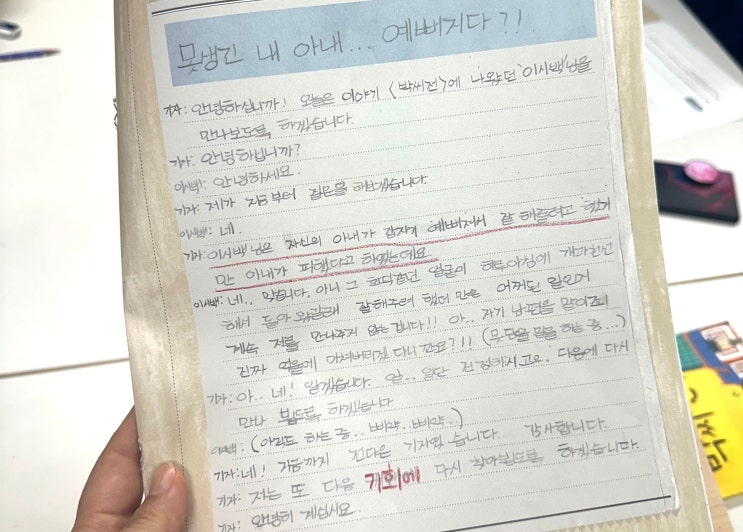 못생긴 내 아내... 예뻐지다?!
기자: 안녕하십니까! 오늘은 이야기 <박씨전>에 나왔던 '이시백'님을
만나보도록 하겠습니다.
기자: 안녕하십니까?
이시백: 안녕하세요.
기자: 제가 지금부터 질문을 해보겠습니다.
이시백: 네.
기자: 이시백님은 자신의 아내가 갑자기 예뻐져서 잘 해줄려고 했지
만 아내가 피했다고 하였는데요
이시백: 네.. 맞습니다. 아니 그 얼굴이 하루아침에 개과천선
해서 돌아 잘해주려 했더만은 어찌된 일인지
계속 저를 만나주지 않는 겁니다!! 아.. 자기 남편을 말이죠!!
진짜 억울해 미쳐버리겠다니깐요?!! (무단을 하는 중...)
기자: 아.. 네! 알겠습니다. 일단 진정하시고요. 다음에 다시
만나 뵙도록 하겠습니다
이시백: (아직도 하는 중.. 삐약.. 삐약..)
기자: 네! 지금까지 기자였습니다 감사합니다.
기자: 저는 또 다음 기회에 다시 찾아뵙도록 하겠습니다.
기자: 안녕히 계십시요